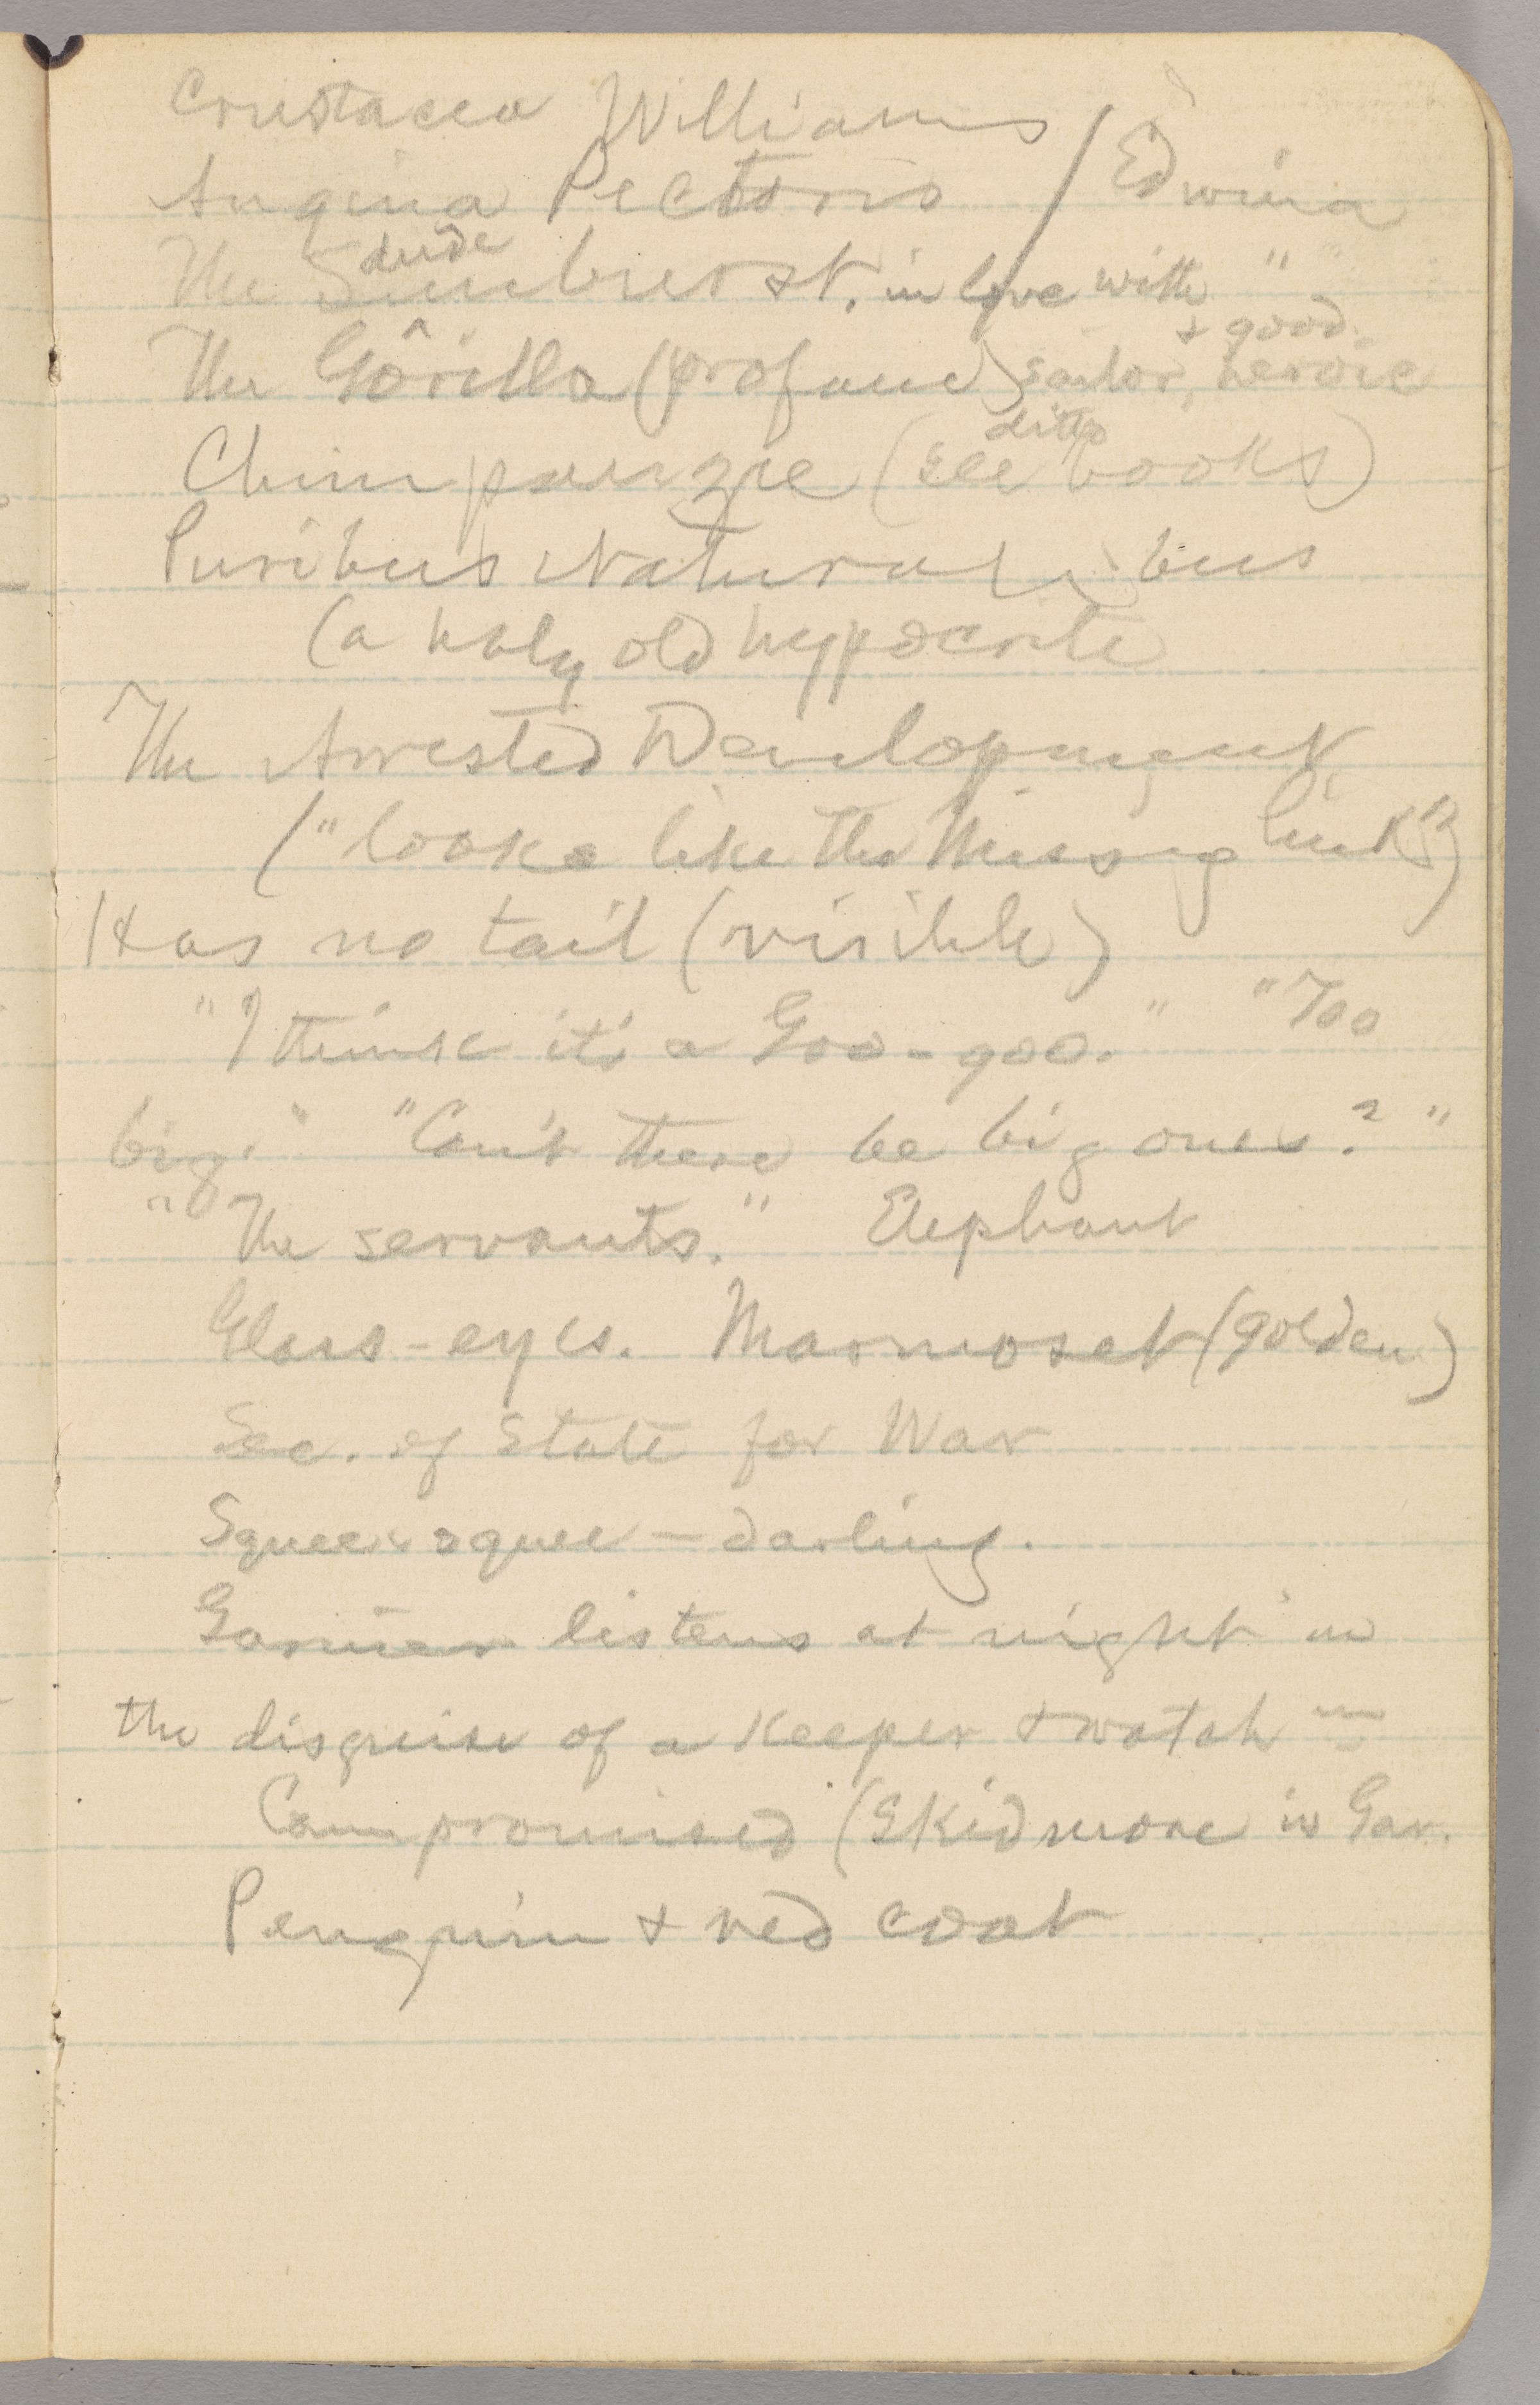 Crustacea Williams
Angina Pectoris / Edwina
dude
The Sunburst. in love with "
+ good.
The Gorilla (profane) sailor, heroic
ditto
Chimpanzee (see books)
Puribus Naturalibus
(a holy old hypocrite
The Arrested Development
("looks like the Missing Link")
Has no tail (visible)
"I think it's a Goo-goo." "Too
big." "Can't there be big ones?"
"The servants." Elephant
Glass-eyes. Marmoset (golden)
Sec. of State for War
Squee-squee — darling.
Garnier listens at night in
the disguise of a keeper & watch
Compromised (Skidmore is Gar.
Penguin & red coat